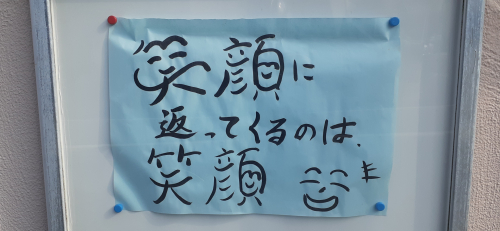 笑顔に
返ってくるのは、
笑顔